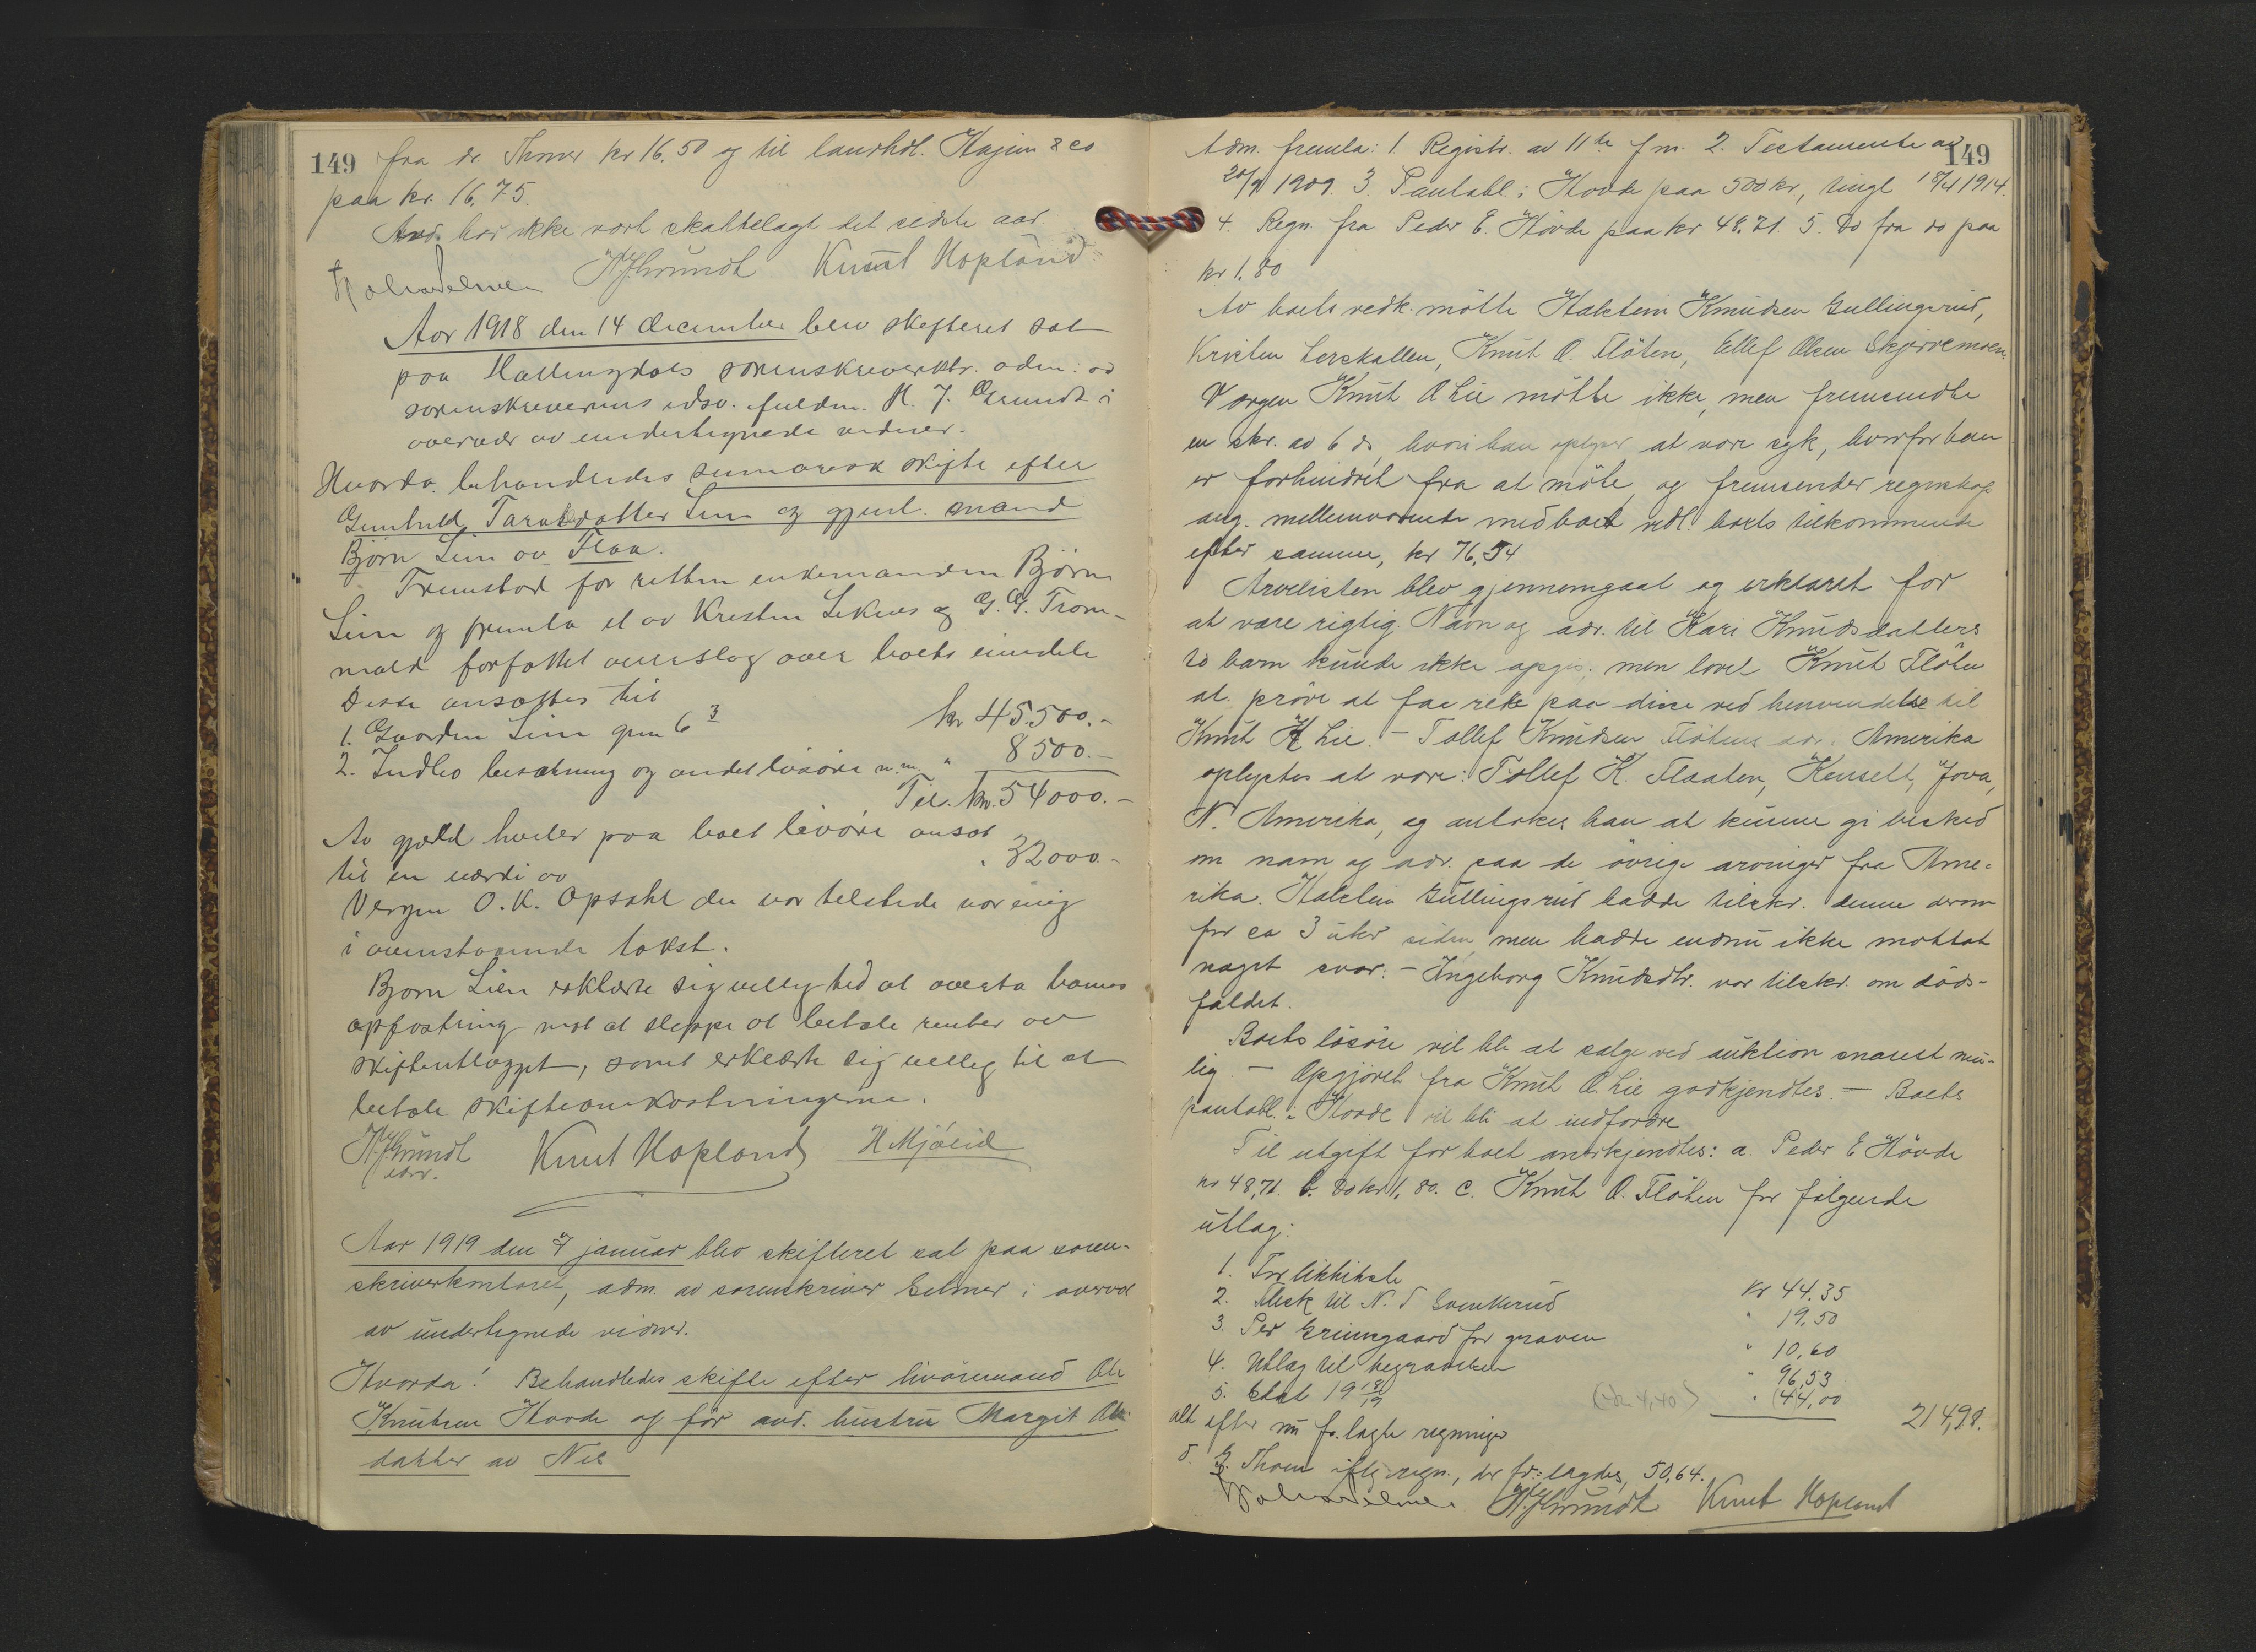 149 fra dr. Thoner kr 16.50 og til landhdl. Hajem & co
paa kr. 16,75.
Avd. har ikke vært skattelagt det sidste aar.
H J Grundt Knut Hopland
Aar 1918 den 14 december blev skifteret sat
paa Hallingdals sorenskriverktr. adm. av
sorenskriverens edsv. fuldm. H. J. Grundt i
overvær av undertegnede vidner.
Hvorda. behandledes summarisk skifte efter
Gunhild Taraldsdatter Lien og gjenl. mand
Bjørn Lien av Flaa.
Fremstod for retten enkemanden Bjørn
Lien og fremla et av Kristen Leknes og G. G. Trom-
mald forfattet overslag over boets eiendele
Disse ansattes til
1. Gaarden Lien gnr 6 3 kr 45500.-
2. Indbo besætning og andet løsøre m.m. " 8500.-
Til. kr. 54000.-
Av gjæld hviler paa boet livøre ansat
til en værdi av " 32000.-
Vergen O. K. Opsahl der var tilstede var enig
i ovenstaaende takst.
Bjørn Lien erklærte sig villig ved at overta barnets
opfostring mot at sleppe at betale renter av
skifteutlægget, samt erklærte sig villig til at
betale skifteomkostningerne.
H J Grundt Knut Hopland H Mjøeid
edsv.
Aar 1919 den 7 januar blev skifteret sat paa soren-
skriverkontoret, adm. av sorenskriver Selmer i overvær
av undertegnede vidner.
Hvorda! Behandledes skifte efter livøremand Ole
Knutsen Hovde og før avd. hustru Margit Ols-
datter av Nes
Adm. fremla: 1. Registr. av 11te f m. 2. Testamente av 149
20/9 1909. 3. Pantobl. i Hovde paa 500 kr, tingl 18/4 1914.
4. Regn. fra Peder E. Hovde paa kr 48.71. 5. Do fra do paa
kr 1.80
Av boets vedk. møtte Halstein Knudsen Gullingsrud,
Kristen Lerskallen, Knut O. Fløten, Ellef Olsen Skjerremoen.
Vergen Knut O Lie møtte ikke, men fremsendte
en skr. av 6 ds, hvori han oplyser at være syk, hvorfor han
er forhindret fra at møte, og fremsender regnskap
ang. mellemværende med boet vedl. boets tilkommende
efter samme, kr 76,54
Arvelisten blev gjennemgaat og erklæret for
at være rigtig. Navn og adr. til Kari Knudsdatters
to barn kunde ikke opgis, men lovet Knut Fløten
at prøve at faa rede paa disse ved henvendelse til
Knut K Lie. - Tollef Knudsen Fløtens adr. Amerika
oplystes at være: Tollef K. Flaaten, Kensett, Jova,
N. Amerika, og antokes han at kunne gi besked
om navn og adr. paa de øvrige arvinger fra Ame-
rika. Halstein Gullingsrud hadde tilskr. denne derom
for ca 3 uker siden, men hadde endnu ikke mottat
noget svar. - Ingeborg Knudsdtr. var tilskr. om døds-
faldet.
Boets løsøre vil bli at sælge ved auktion snarest mu-
lig. - Opgjøret fra Knut O. Lie godkjendtes. - Boets
pantobl. i Hovde vil bli at indfordre
Til utgift for boet anerkjendtes: a. Peder E Hovde
kr 48,71. b. Do kr 1,80. c. Knut O. Fløten for følgende
utlag:
1. For likkiste kr 44.35
2. Flesk til N. T Svenkerud " 19,50
3. Per Grimsgaard for graven " 10,60
4. Utlæg til begravelsen " 96,53
5. Skat 19 18/19 (do 4,40) " 44,00
alt efter nu fr.lagte regninger 214,98.
d. G. Thoen iflg. regn., der fr.lagdes, 50,64.
H. J Grundt Knut Hopland